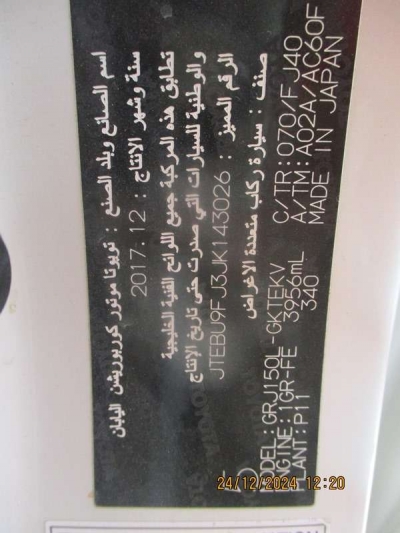 اسم الصانع وبلد الصنع : تويوتا موتور كوربوريشن اليابان
سنة وشهر الانتاج : 2017.12
تطابق هذه المركبة جميع اللوائح الفنية الخليجية
والوطنية للسيارات التي صدرت حتى تاريخ الإنتاج
الرقم المميز : JTEBU9FJ3JK143026
صنف : سيارة ركاب متعددة الاغراض
MODEL: GRJ150L-GKTEKV C/TR: 070/FJ40
ENGINE: 1GR-FE 3956mL A/TM: A02A/AC60F
PLANT: P11 340 MADE IN JAPAN
24/12/2024 12:20